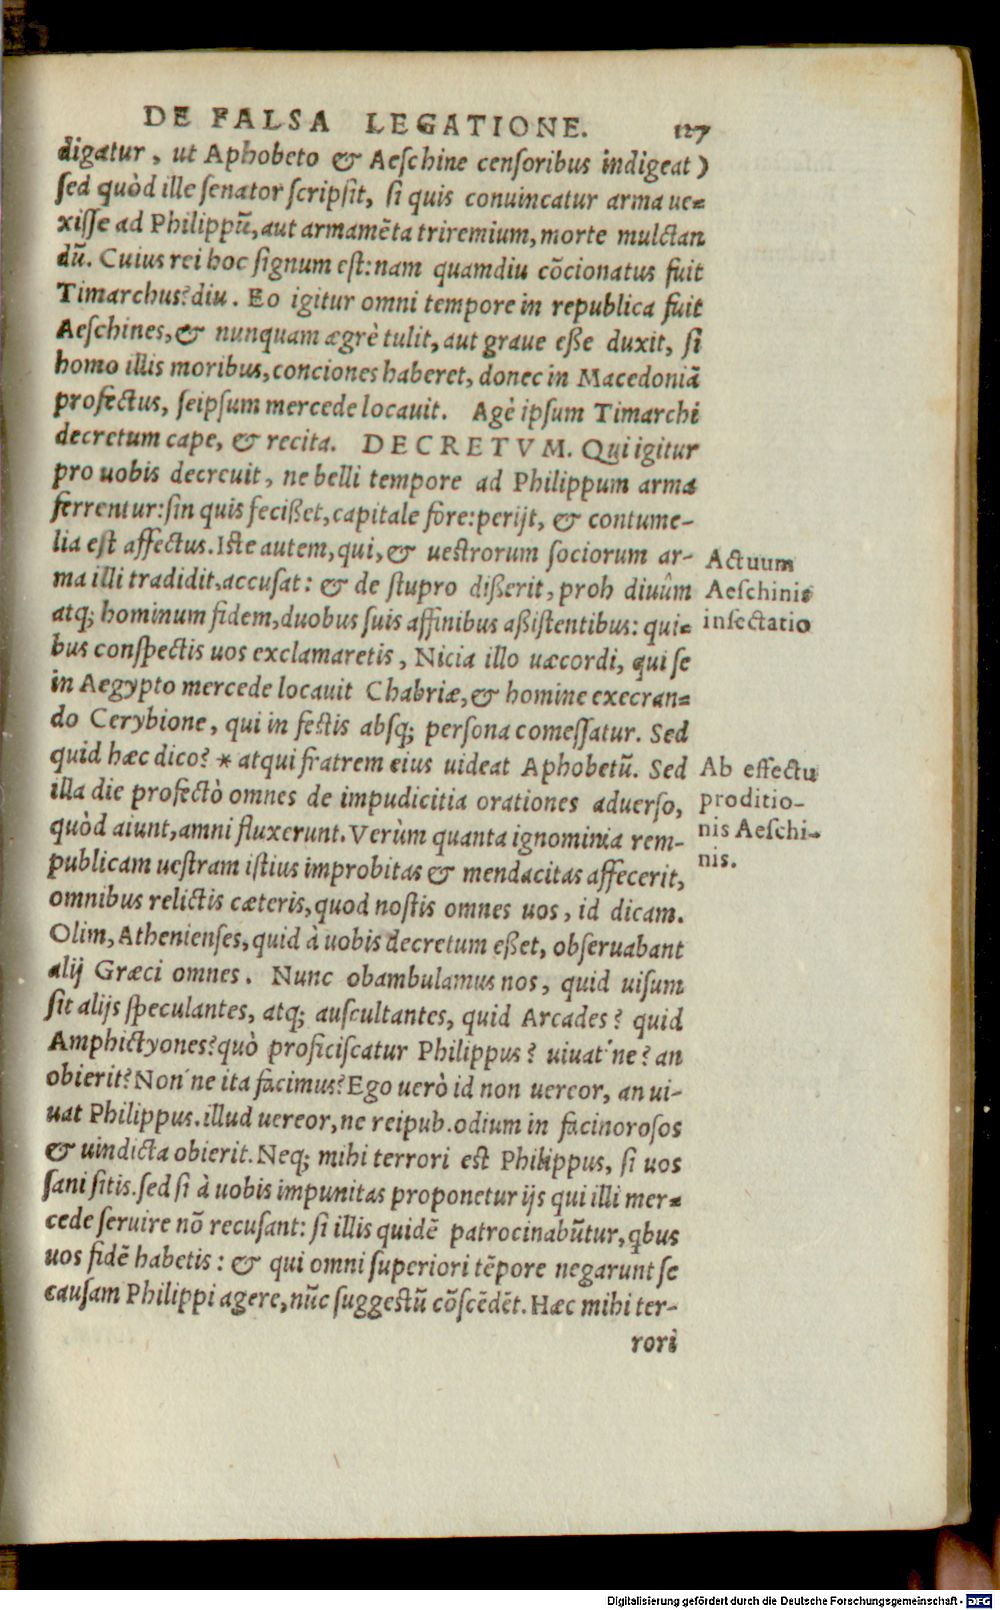 DE FALSA LEGATIONE. 127
digatur, ut Aphobeto & Aeſchine cenſoribus indigeat)
ſed quòd ille ſenator ſcripſit, ſi quis conuincatur arma ue=
xiſſe ad Philippũ, aut armamēta triremium, morte mulctan
dũ. Cuius rei hoc ſignum eſt: nam quamdiu cõcionatus fuit
Timarchus? diu. Eo igitur omni tempore in republica fuit
Aeſchines, & nunquam ægrè tulit, aut graue eſſe duxit, ſi
homo illis moribus, conciones haberet, donec in Macedoniã
profectus, ſeipſum mercede locauit. Agè ipſum Timarchi
decretum cape, & recita. DECRETVM. Qui igitur
pro uobis decreuit, ne belli tempore ad Philippum arma
ferrentur: ſin quis feciſſet, capitale fore: perijt, & contume-
lia eſt affectus. Iſte autem, qui, & ueſtrorum ſociorum ar-
ma illi tradidit, accuſat: & de ſtupro diſſerit, proh diuûm
atq; hominum fidem, duobus ſuis affinibus aſſiſtentibus: qui=
bus conſpectis uos exclamaretis, Nicia illo uæcordi, qui ſe
in Aegypto mercede locauit Chabriæ, & homine execran=
do Cerybione, qui in feſtis abſq; perſona comeſſatur. Sed
quid hæc dico? * atqui fratrem eius uideat Aphobetũ. Sed
illa die profectò omnes de impudicitia orationes aduerſo,
quòd aiunt, amni fluxerunt. Verùm quanta ignominia rem-
publicam ueſtram iſtius improbitas & mendacitas affecerit,
omnibus relictis cæteris, quod noſtis omnes uos, id dicam.
Olim, Athenienſes, quid à uobis decretum eſſet, obſeruabant
alij Græci omnes. Nunc obambulamus nos, quid uiſum
ſit alijs ſpeculantes, atq; auſcultantes, quid Arcades? quid
Amphictyones? quò proficiſcatur Philippus? uiuat'ne? an
obierit? Non'ne ita facimus? Ego uerò id non uereor, an ui-
uat Philippus. illud uereor, ne reipub. odium in facinoroſos
& uindicta obierit. Neq; mihi terrori eſt Philippus, ſi uos
ſani ſitis. ſed ſi à uobis impunitas proponetur ijs qui illi mer=
cede ſeruire nõ recuſant: ſi illis quidē patrocinabũtur, qbus
uos fidē habetis: & qui omni ſuperiori tēpore negarunt ſe
cauſam Philippi agere, nũc ſuggeſtũ cõſcēdēt. Hæc mihi ter-
rori
Actuum
Aeſchinis
inſectatio
Ab effectu
proditio-
nis Aeſchi-
nis.
Digitalisierung gefördert durch die Deutsche Forschungsgemeinschaft - DFG